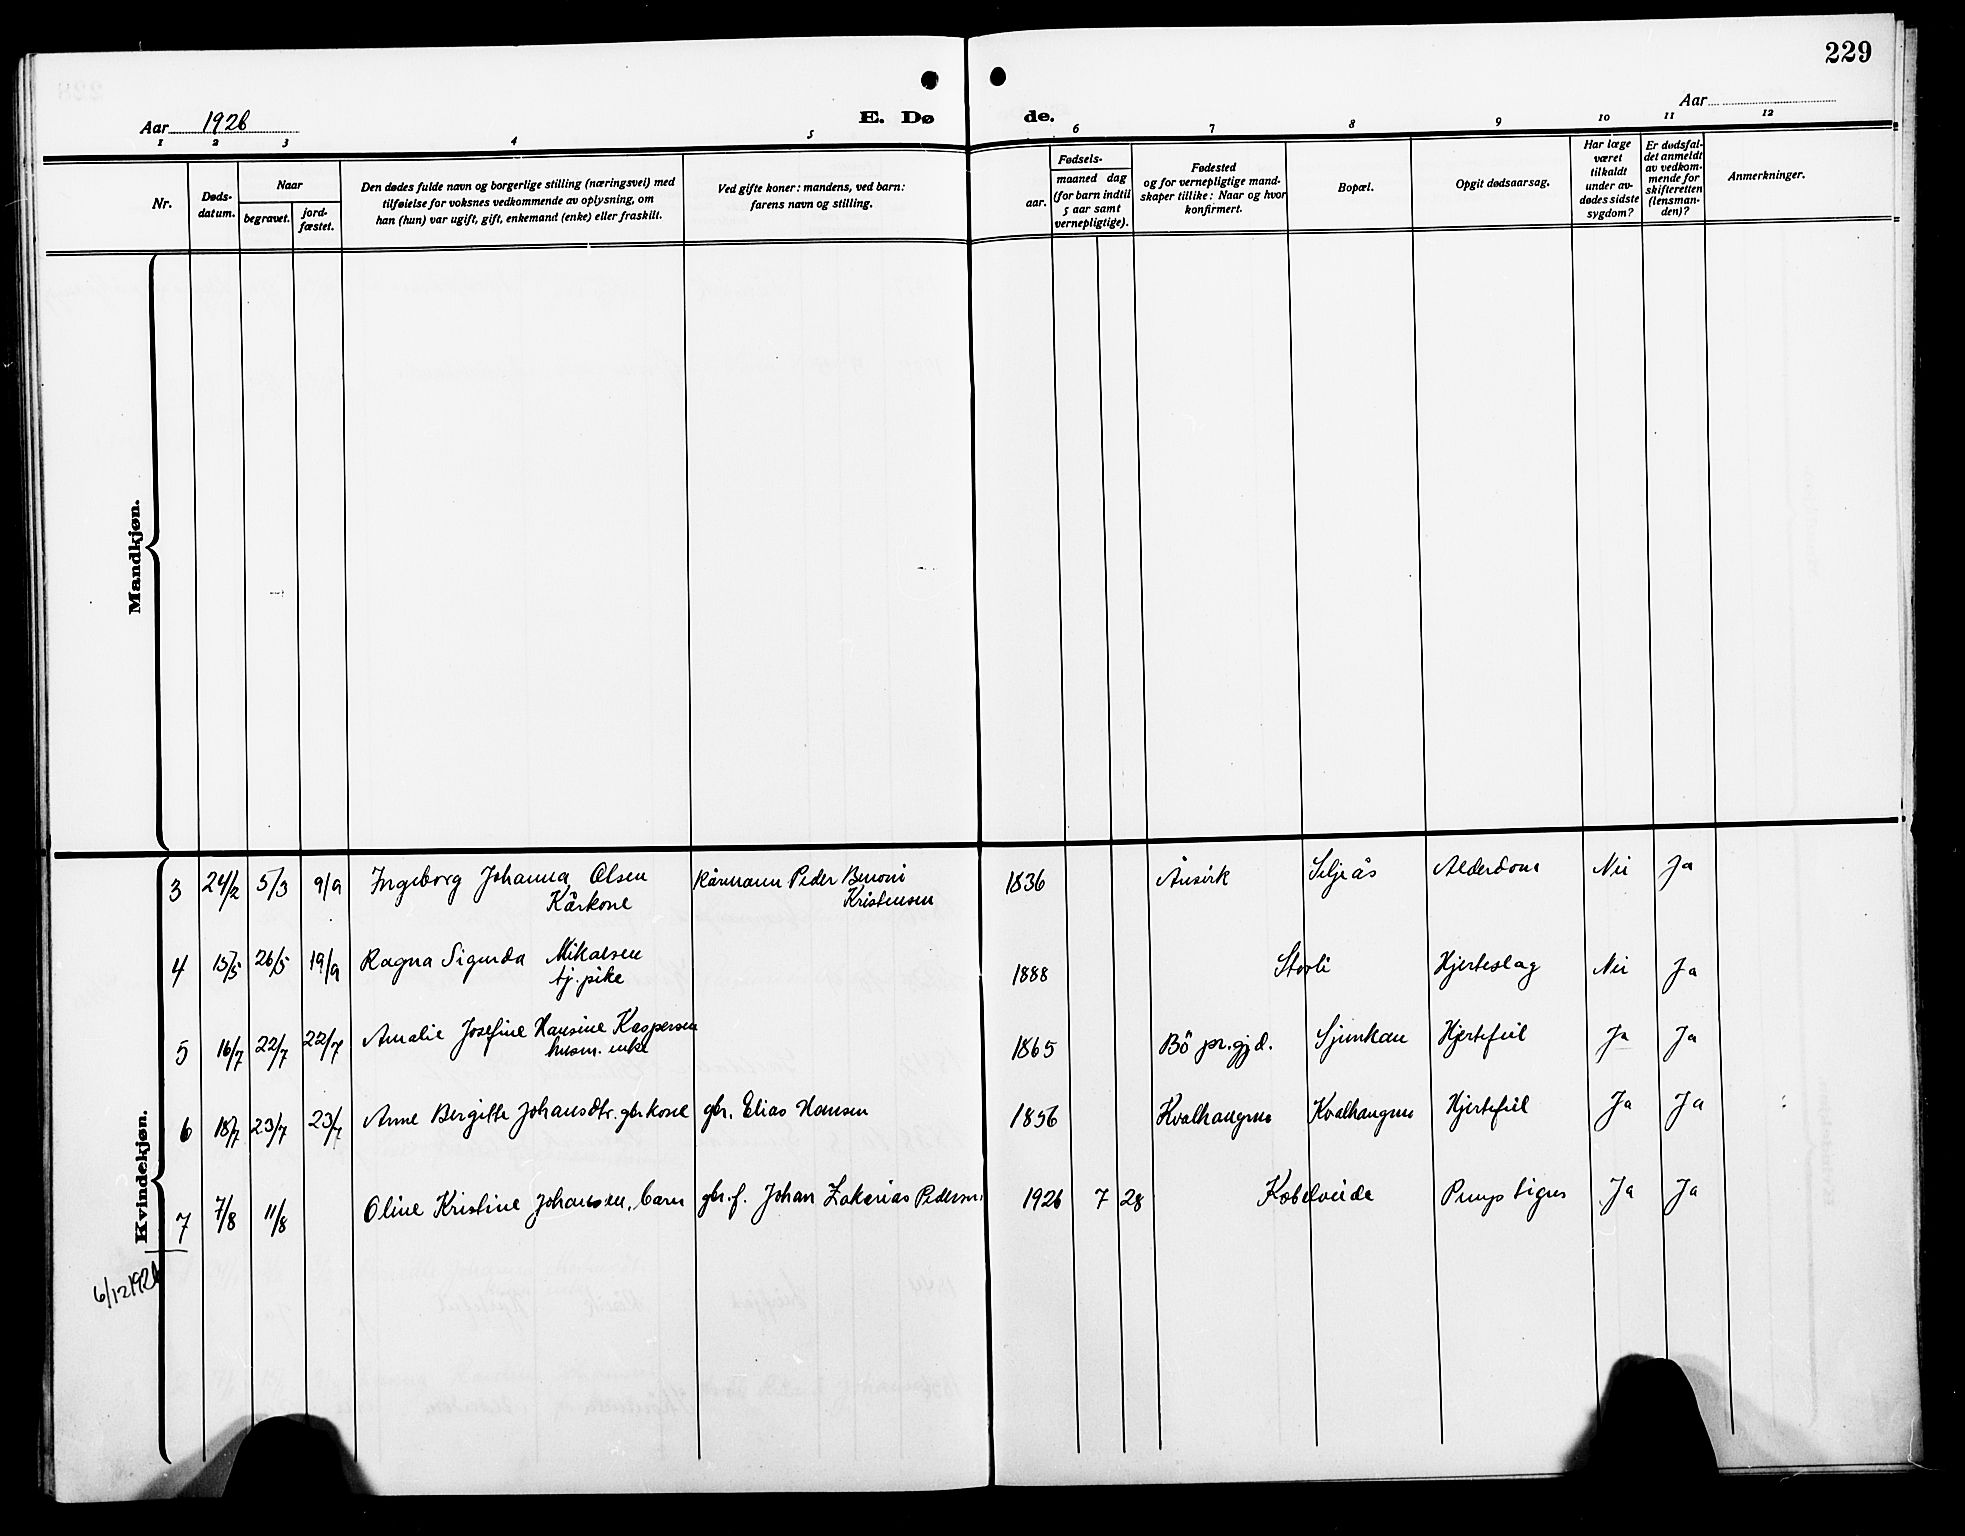 229
Aar 1926
E. Dø
de.
Aar
1 2 3 4 5 6 7 8 9 10 11 12
Nr.
Døds-
datum.
Naar
begravet.
jord-
fæstet.
Den dødes fulde navn og borgerlige stilling (næringsvei) med
tilføielse for voksnes vedkommende av oplysning, om
han (hun) var ugift, gift, enkemand (enke) eller fraskilt.
Ved gifte koner: mandens, ved barn:
farens navn og stilling.
Fødsels-
aar.
maaned dag
(for barn indtil
5 aar samt
vernepligtige).
Fødested
og for vernepligtige mand-
skaper tillike: Naar og hvor
konfirmert.
Bopæl.
Opgit dødsaarsag.
Har læge
været
tilkaldt
under av-
dødes sidste
sygdom?
Er dødsfal-
det anmeldt
av vedkom-
mende for
skifteretten
(lensman-
den)?
Anmerkninger.
Mandkjøn.
Kvindekjøn.
3 24/2 5/3 9/9 Ingeborg Johanna Olsen Kårmann Peder Benoni 1836 Ånsvik Seljeås Alderdom Nei Ja
Kårkone Kristensen
4 15/5 26/5 19/9 Ragna Sigurda Mikalsen 1888 Storli Hjerteslag Nei Ja
tj. pike
5 16/7 22/7 22/7 Amalie Josefine Hansine Kaspersen 1865 Bö pr.gjd. Sjunkan Hjertefeil Ja Ja
husm. enke
6 18/7 23/7 23/7 Anne Bergitte Johansdtr. gbr kone gbr. Elias Hansen 1856 Kvalhaugnes Kvalhaugnes Hjertefeil Ja Ja
7 7/8 11/8 Oline Kristine Johansen, barn gbr. f. Johan Zakarias Pedersen 1926 7 28 Kobelveide Ja Ja
6/12 1926